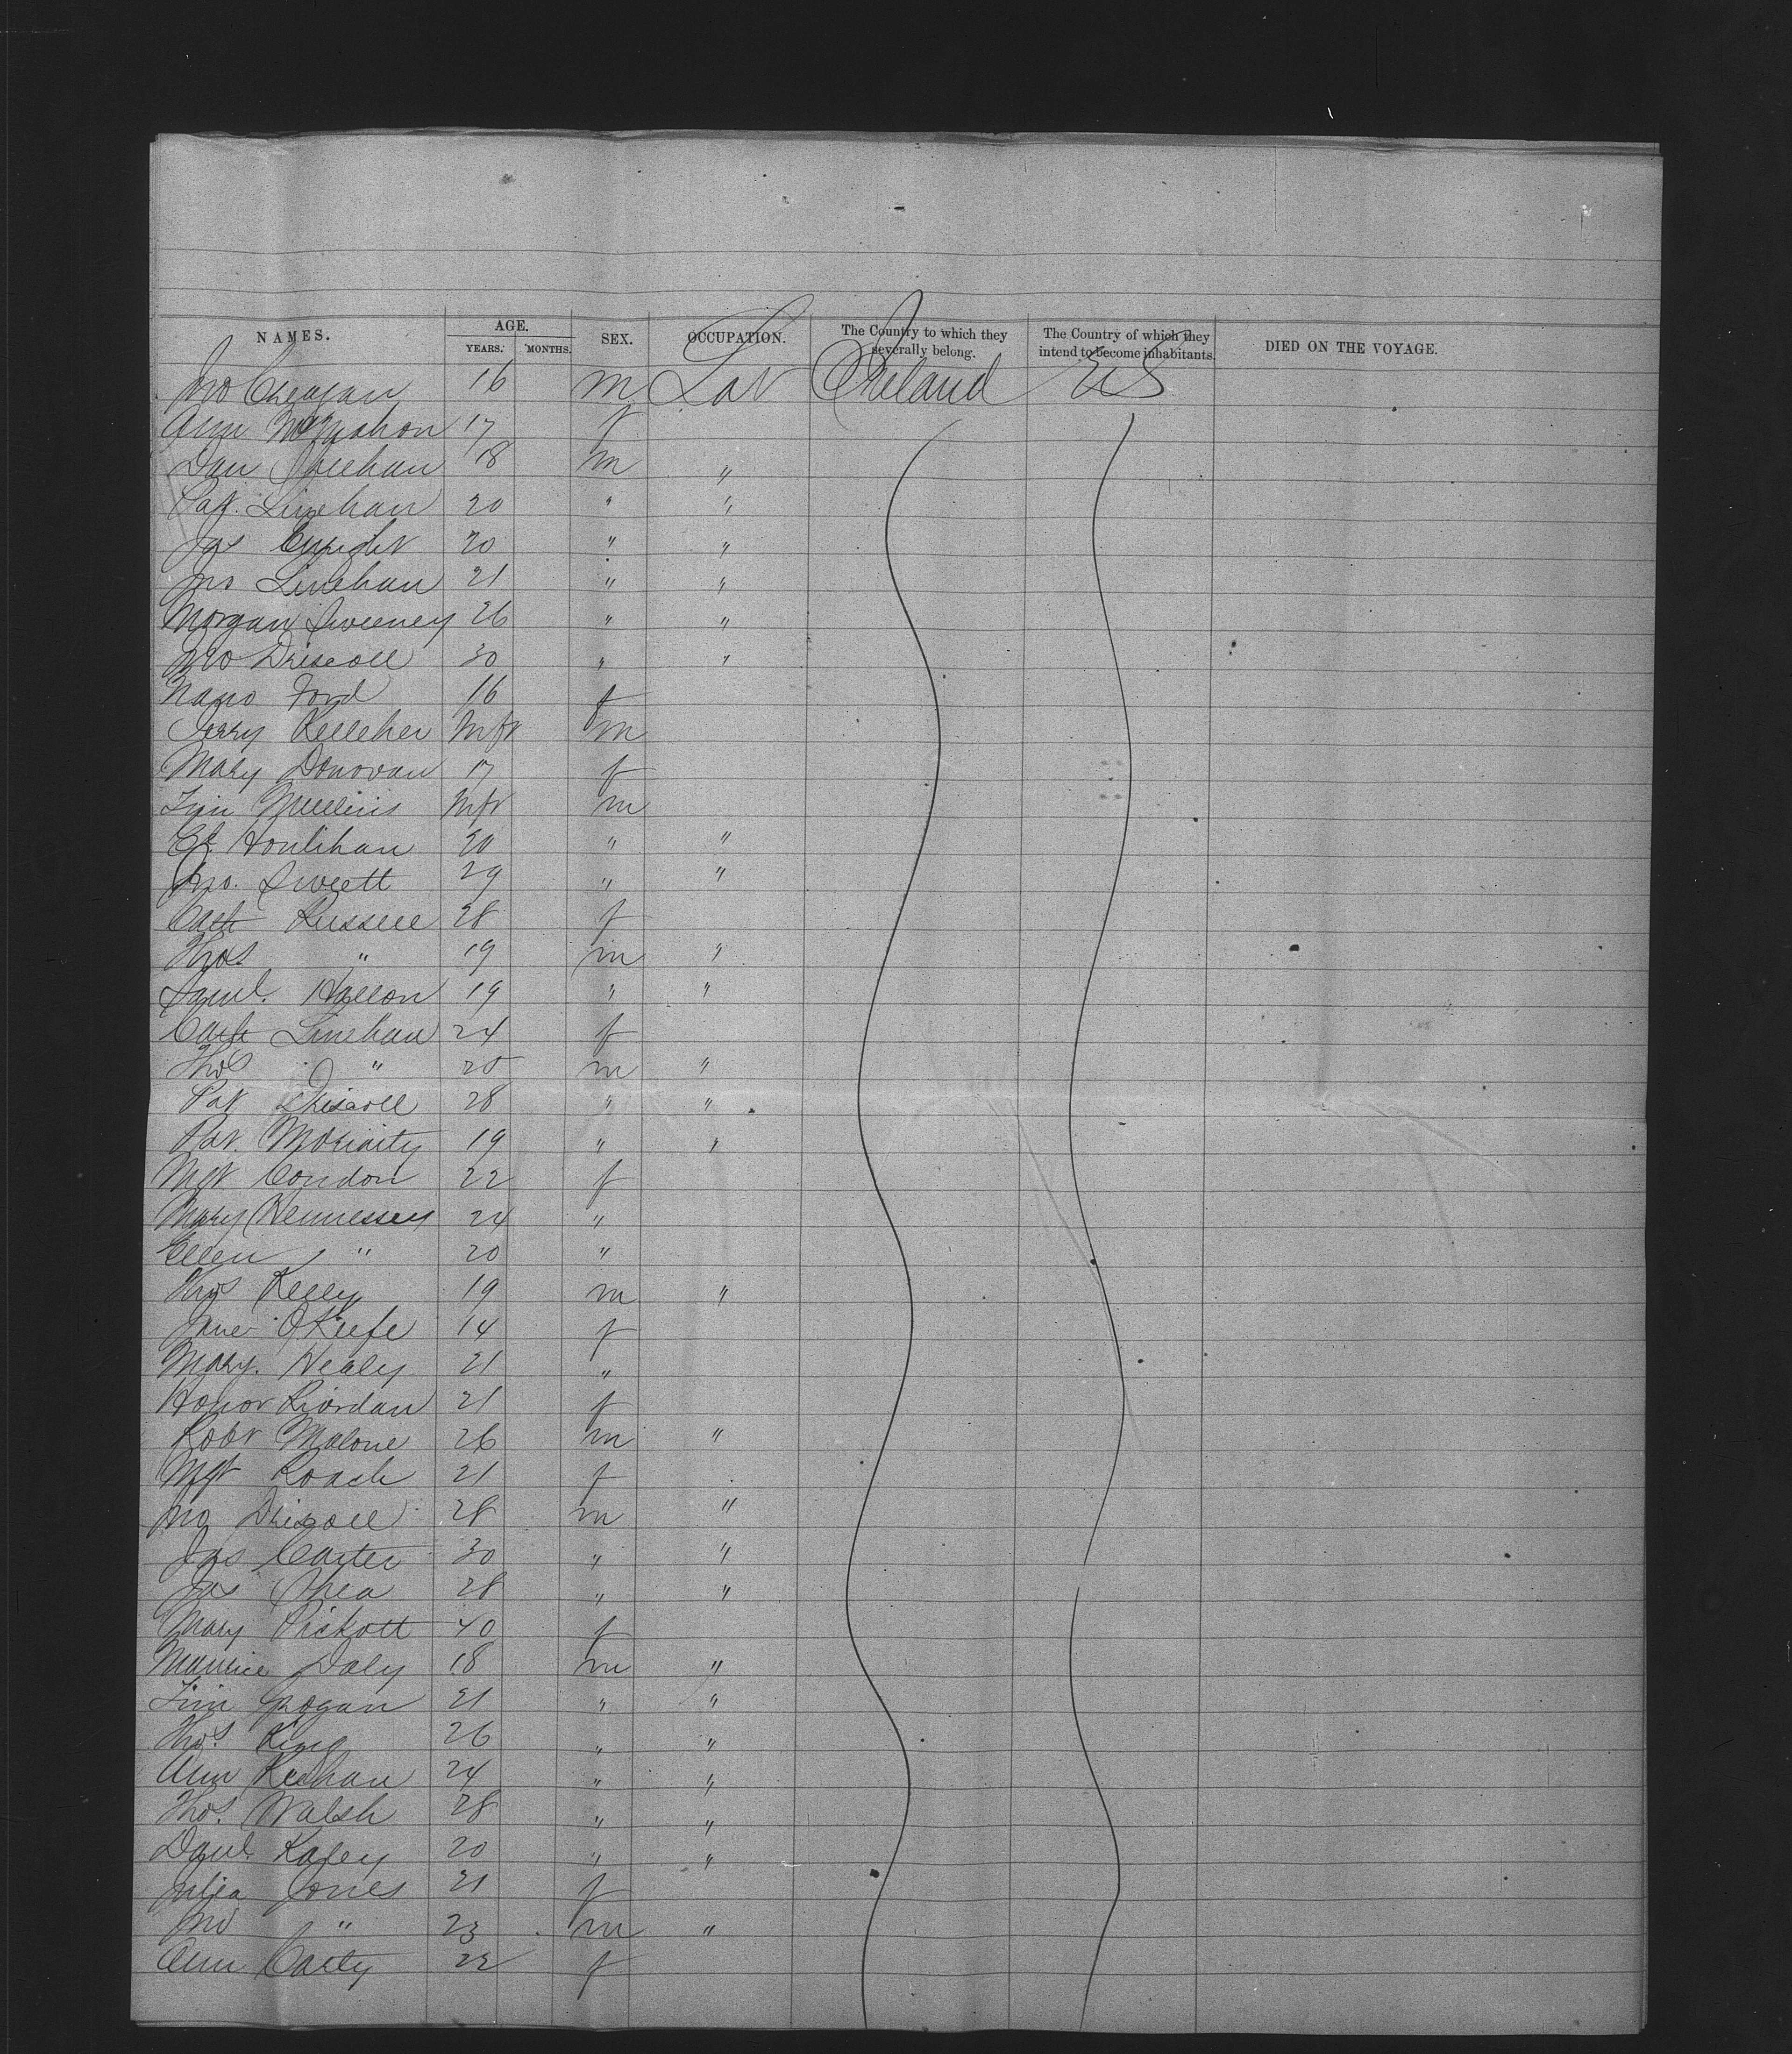 NAMES. AGE. SEX. OCCUPATION. The Country to which they severally belong. The Country of which they intend to become inhabitants. DIED ON THE VOYAGE.
YEARS. MONTHS.
Jno Creagan 16 m Lab Ireland US
Ann McMahon 17 f
Dan Sheehan 18 m "
Pat. Linehan 20 " "
Jas Enright 20 " "
Jno Linehan 21 " "
Morgan Sweeney 26 " "
Jno Driscoll 30 " "
Nano Ford 16 f
Jerry Kelleher Inft m
Mary Donovan 17 f
Tim Mullins Inft m
Ed. Houlihan 20 " "
Jno. Swett 29 " "
Cath Russell 28 f
Thos " 19 m "
Saml. Hallon 19 " "
Cath Linehan 24 f
Thos " 25 m "
Pat Driscoll 28 " "
Pat. Moriarty 19 " "
Mgt Condon 22 f
Mary Hennessey 24 "
Ellen " 20 "
Thos Kelly 19 m "
Jane O'Keefe 14 f
Mary. Healy 21 "
Honor Riordan 21 f
Robt Malone 26 m "
Mgt Roach 21 f
Jno Driscoll 28 m "
Jas Carter 30 " "
Jas Shea 28 " "
Mary Pickott 40 f
Maurice Daly 18 m "
Tim Grogan 21 " "
Thos. King 26 " "
Ann 24 " "
Thos. Walsh 28 " "
Danl. 20 " "
Julia Jones 21 f
Jno " 23 m "
Ann Carty 22 f